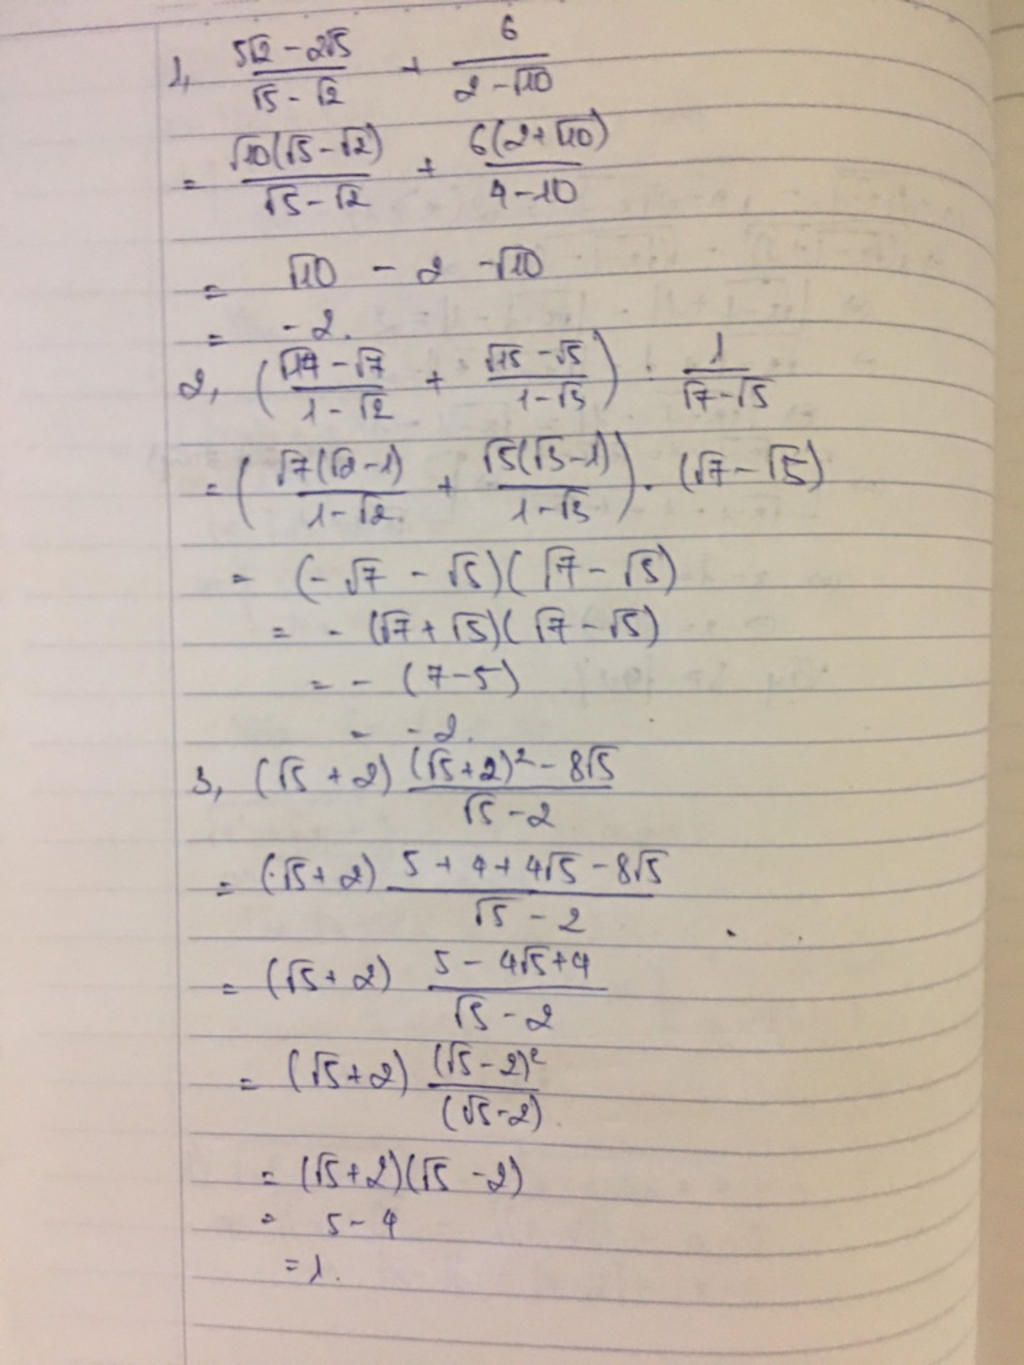 1, (5√2 - 2√5)/(√5 - √2) + 6/(2 - √10)
= √10(√5 - √2)/(√5 - √2) + 6(2 + √10)/(4 - 10)
= √10 - 2 - √10
= -2.
2, ((√14 - √7)/(1 - √2) + (√15 - √5)/(1 - √3)) : 1/(√7 - √5)
= (√7(√2 - 1)/(1 - √2) + √5(√3 - 1)/(1 - √3)) . (√7 - √5)
= (-√7 - √5)(√7 - √5)
= - (√7 + √5)(√7 - √5)
= - (7 - 5)
= -2.
3, (√5 + 2) ((√5 + 2)² - 8√5)/(√5 - 2)
= (√5 + 2) (5 + 4 + 4√5 - 8√5)/(√5 - 2)
= (√5 + 2) (5 - 4√5 + 4)/(√5 - 2)
= (√5 + 2) (√5 - 2)²/(√5 - 2)
= (√5 + 2)(√5 - 2)
= 5 - 4
= 1.